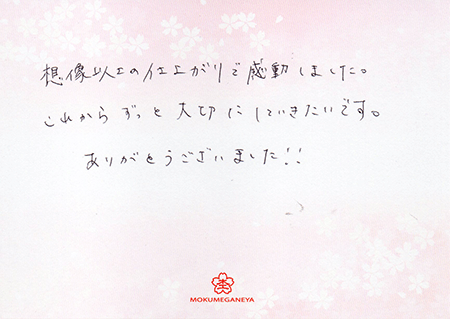 想像以上の仕上がりで感動しました。
これからずっと大切にしていきたいです。
ありがとうございました!!
MOKUMEGANEYA